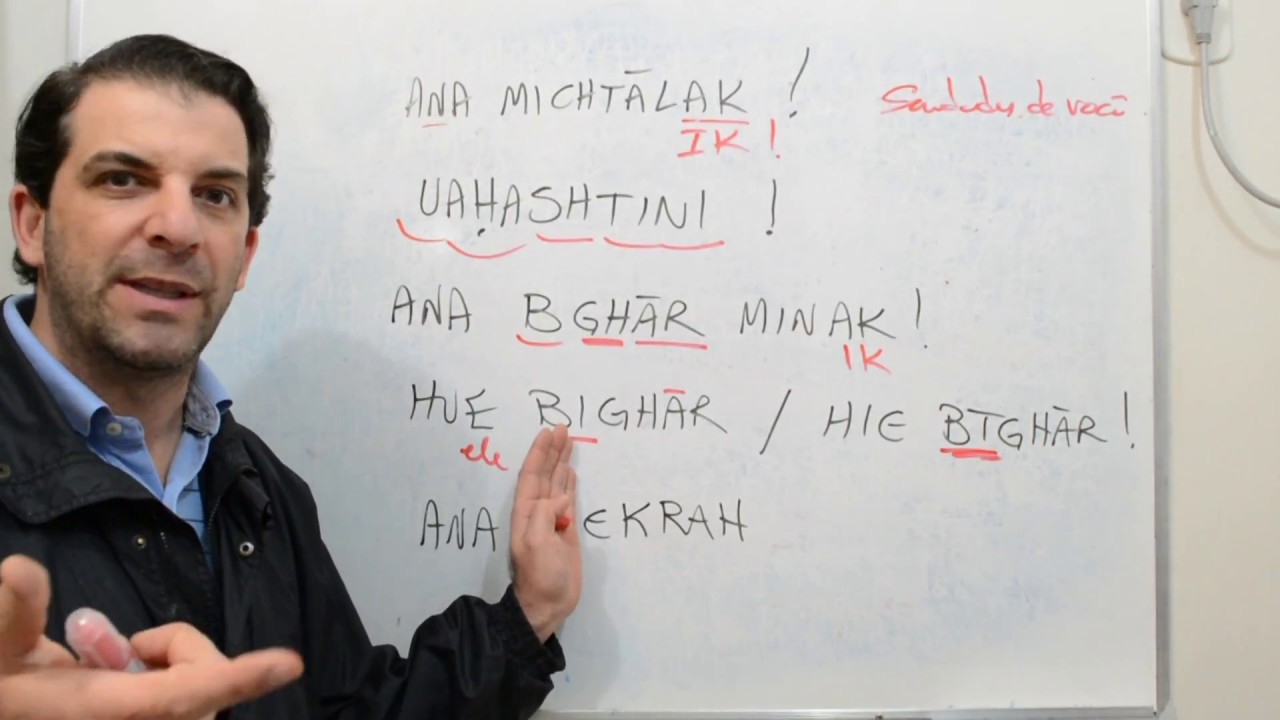 ANA MICHTĀLAK ! Saudades de você
IK !
UAḤASHTINI !
ANA BGHĀR MINAK !
IK
HUE BIGHĀR / HIE BTGHĀR !
ele
ANA EKRAH